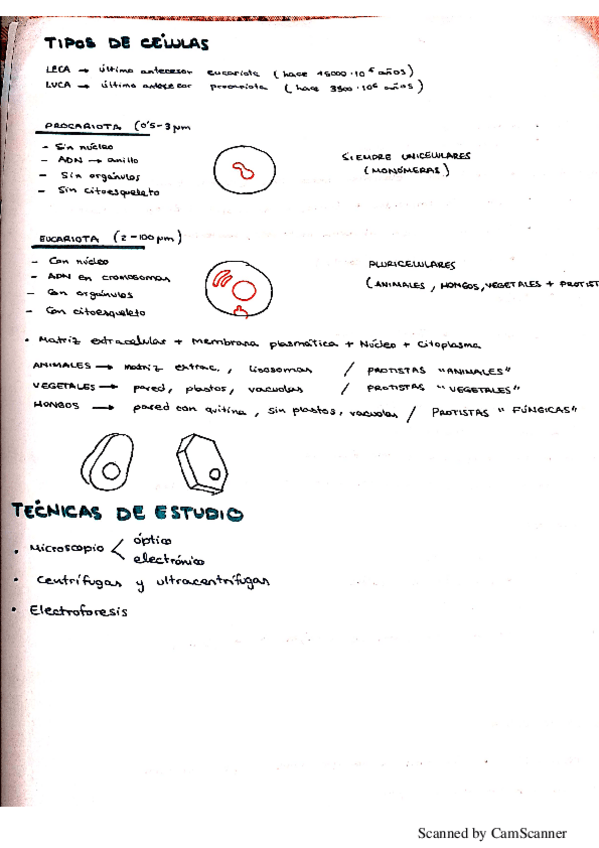 TIPOS DE CÉLULAS
LECA → último antecesor eucariota (hace 15000·10⁶ años)
LUCA → último antecesor procariota (hace 3500·10⁶ años)
PROCARIOTA (0'5-3 μm
- Sin núcleo
- ADN → anillo
- Sin orgánulos
- Sin citoesqueleto
SIEMPRE UNICELULARES
(MONÓMERAS)
EUCARIOTA (2-100 μm)
- Con núcleo
- ADN en cromosomas
- Con orgánulos
- Con citoesqueleto
PLURICELULARES
(ANIMALES, HONGOS, VEGETALES + PROTIST
• Matriz extracelular + Membrana plasmática + Núcleo + Citoplasma
ANIMALES → matriz extrac., lisosomas / PROTISTAS "ANIMALES"
VEGETALES → pared, plastos, vacuolas / PROTISTAS "VEGETALES"
HONGOS → pared con quitina, sin plastos, vacuolas / PROTISTAS "FÚNGICAS"
TÉCNICAS DE ESTUDIO
• Microscopio < óptico
electrónico
• Centrífugas y ultracentrífugas
• Electroforesis
Scanned by CamScanner